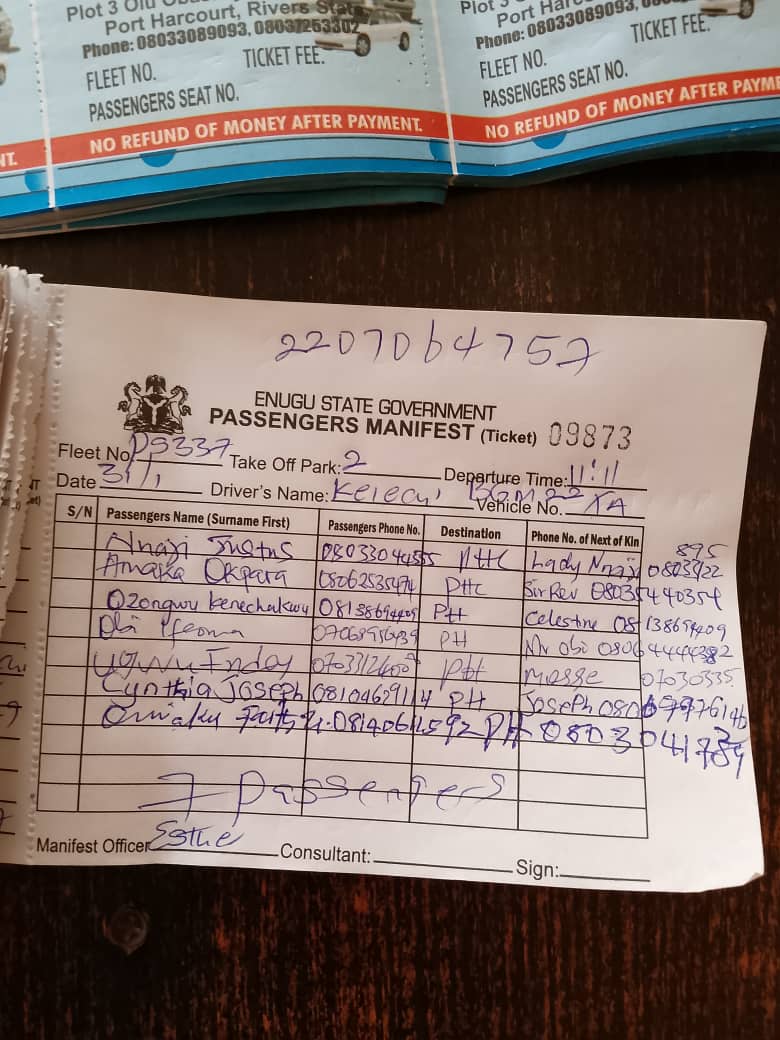 Plot 3 Old
Port Harcourt, Rivers State
Phone: 08033089093, 08037253302
FLEET NO. TICKET FEE:
PASSENGERS SEAT NO.
NO REFUND OF MONEY AFTER PAYMENT.
Plot 3
Port
Phone: 08033089093,
FLEET NO. TICKET FEE:
PASSENGERS SEAT NO.
NO REFUND OF MONEY AFTER
NT.
2207064752
ENUGU STATE GOVERNMENT
PASSENGERS MANIFEST (Ticket) 09873
Fleet No PS337 Take Off Park: 2 Departure Time: 11:11
Date 31/1 Driver's Name: Kelechi Vehicle No. BGM 22 XA
S/N Passengers Name (Surname First) Passengers Phone No. Destination Phone No. of Next of Kin
Nnaji Justus 08033044555 PHC Lady Nnaji 0803722 895
Amaka Okpara PHC Sir Rev 08035440354
Ozongwu Kenechukwu 08138694409 PH Celestine 08138694409
Obi Ifeoma PH Mr Obi
Ugwu Friday PH 07030335
Cynthia Joseph 08104629114 PH Joseph
Faith PH
7 Passengers
Manifest Officer Esthe Consultant: Sign: